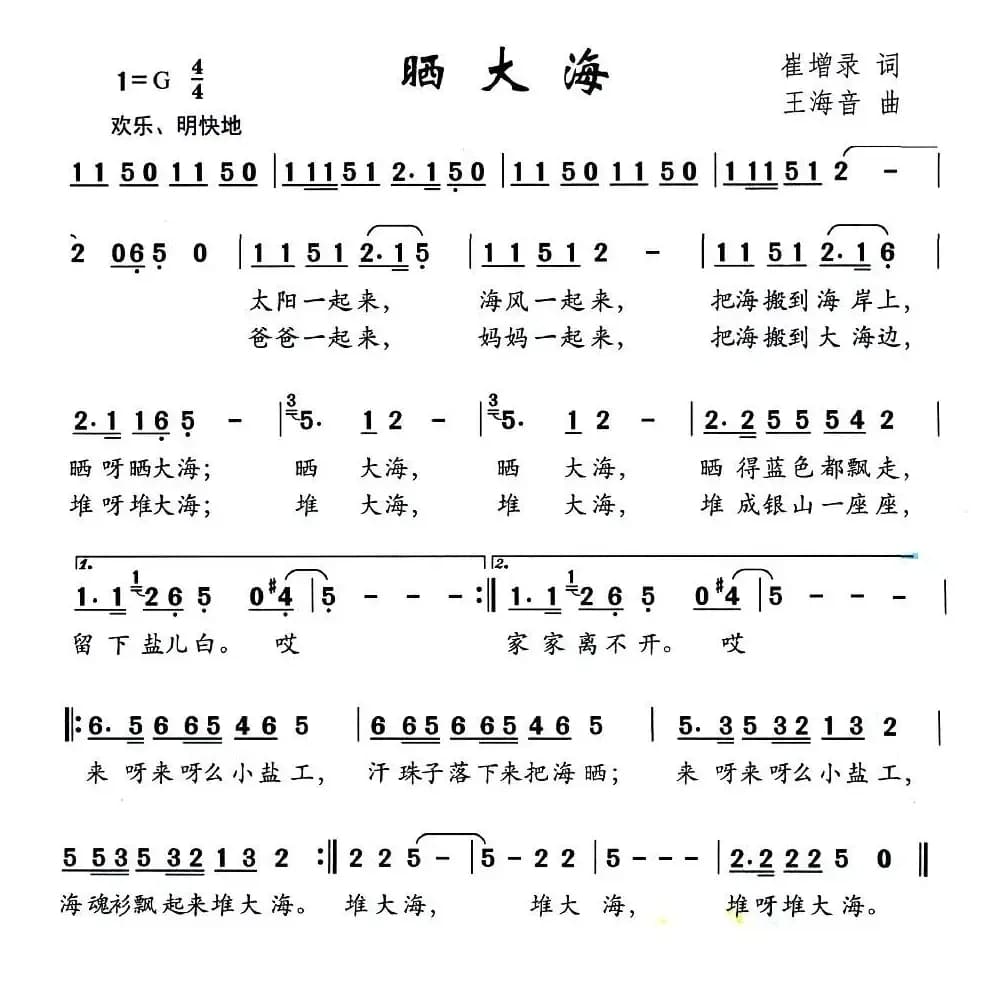 晒大海
1=G 4/4
崔增录 词
王海音 曲
欢乐、明快地
1 1 5 0 1 1 5 0 | 1 1 1 5 1 2. 1 5 0 | 1 1 5 0 1 1 5 0 | 1 1 1 5 1 2 - |
2 0 6 5 0 | 1 1 5 1 2. 1 5 | 1 1 5 1 2 - | 1 1 5 1 2. 1 6 |
太阳一起来, 海风一起来, 把海搬到海岸上,
爸爸一起来, 妈妈一起来, 把海搬到大海边,
2. 1 1 6 5 - | 3 5. 1 2 - | 3 5. 1 2 - | 2. 2 5 5 5 4 2 |
晒呀晒大海; 晒大海, 晒大海, 晒得蓝色都飘走,
堆呀堆大海; 堆大海, 堆大海, 堆成银山一座座,
1. 2.
1. 1 1 2 6 5 0 #4 | 5 - - - :‖ 1. 1 1 2 6 5 0 #4 | 5 - - - |
留下盐儿白。哎 家家离不开。哎
‖: 6. 5 6 6 5 4 6 5 | 6 6 5 6 6 5 4 6 5 | 5. 3 5 3 2 1 3 2 |
来呀来呀么小盐工, 汗珠子落下来把海晒; 来呀来呀么小盐工,
5 5 3 5 3 2 1 3 2 :‖ 2 2 5 - | 5 - 2 2 | 5 - - - | 2. 2 2 2 5 0 ‖
海魂衫飘起来堆大海。 堆大海, 堆大海, 堆呀堆大海。